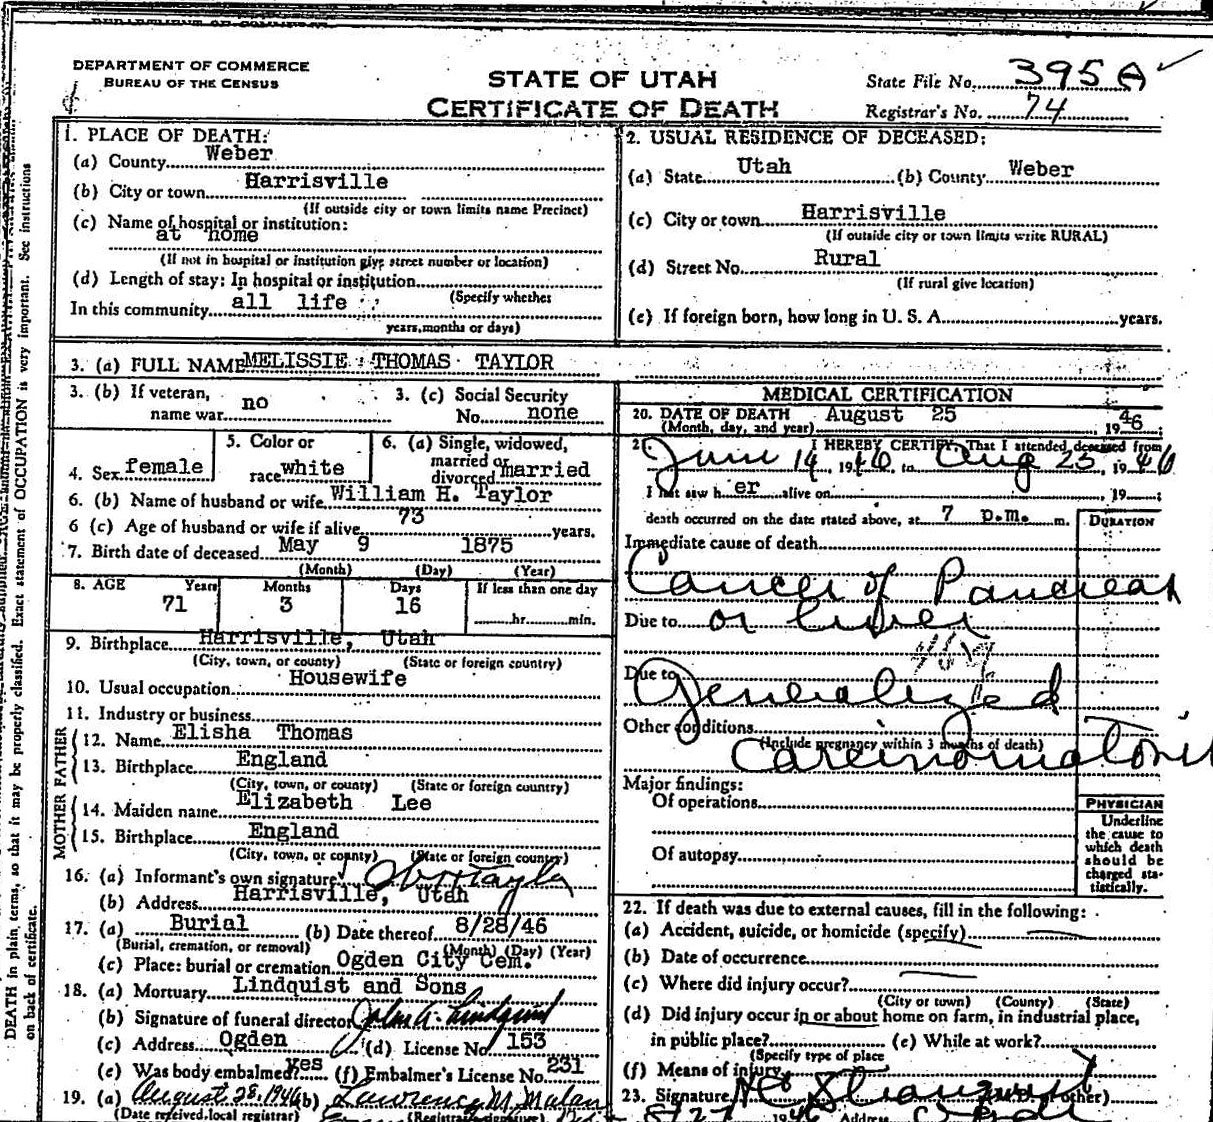 DEPARTMENT OF COMMERCE
BUREAU OF THE CENSUS
STATE OF UTAH
CERTIFICATE OF DEATH
State File No. 395 A
Registrar's No. 74
1. PLACE OF DEATH:
(a) County Weber
(b) City or town Harrisville
(If outside city or town limits name Precinct)
(c) Name of hospital or institution:
at home
(If not in hospital or institution give street number or location)
(d) Length of stay: In hospital or institution
(Specify whether
In this community all life
years, months or days)
2. USUAL RESIDENCE OF DECEASED:
(a) State Utah (b) County Weber
(c) City or town Harrisville
(If outside city or town limits write RURAL)
(d) Street No. Rural
(If rural give location)
(e) If foreign born, how long in U. S. A. years.
3. (a) FULL NAME MELISSIE THOMAS TAYLOR
3. (b) If veteran, name war no
3. (c) Social Security No. none
4. Sex female
5. Color or race white
6. (a) Single, widowed, married or divorced married
6. (b) Name of husband or wife William H. Taylor
6 (c) Age of husband or wife if alive 73 years.
7. Birth date of deceased May 9 1875
(Month) (Day) (Year)
8. AGE Years Months Days If less than one day
71 3 16 hr. min.
9. Birthplace Harrisville, Utah
(City, town, or county) (State or foreign country)
10. Usual occupation Housewife
11. Industry or business
FATHER
12. Name Elisha Thomas
13. Birthplace England
(City, town, or county) (State or foreign country)
MOTHER
14. Maiden name Elizabeth Lee
15. Birthplace England
(City, town, or county) (State or foreign country)
16. (a) Informant's own signature
(b) Address Harrisville, Utah
17. (a) Burial (b) Date thereof 8/28/46
(Burial, cremation, or removal) (Month) (Day) (Year)
(c) Place: burial or cremation Ogden City Cem.
18. (a) Mortuary Lindquist and Sons
(b) Signature of funeral director John A. Lindquist
(c) Address Ogden (d) License No. 153
(e) Was body embalmed? yes (f) Embalmer's License No. 231
19. (a) August 28, 1946 (b) Lawrence M. Malan
(Date received local registrar) (Registrar's signature)
MEDICAL CERTIFICATION
20. DATE OF DEATH August 25
(Month, day, and year) 1946
21. I HEREBY CERTIFY, That I attended deceased from
June 14, 1946, to Aug 25, 1946
I last saw her alive on , 19 ;
death occurred on the date stated above, at 7 p.m. m.
DURATION
Immediate cause of death
Cancer of Pancreas
Due to or liver
Due to
Generalized
Other conditions
(Include pregnancy within 3 months of death)
Carcinomatosis
Major findings:
Of operations
Of autopsy
PHYSICIAN
Underline
the cause to
which death
should be
charged sta-
tistically.
22. If death was due to external causes, fill in the following:
(a) Accident, suicide, or homicide (specify)
(b) Date of occurrence
(c) Where did injury occur?
(City or town) (County) (State)
(d) Did injury occur in or about home on farm, in industrial place,
in public place? (e) While at work?
(Specify type of place
(f) Means of injury
23. Signature other)
8/27 1946 Address
See instructions
Exact statement of OCCUPATION is very important.
DEATH in plain terms, so that it may be properly classified.
on back of certificate.